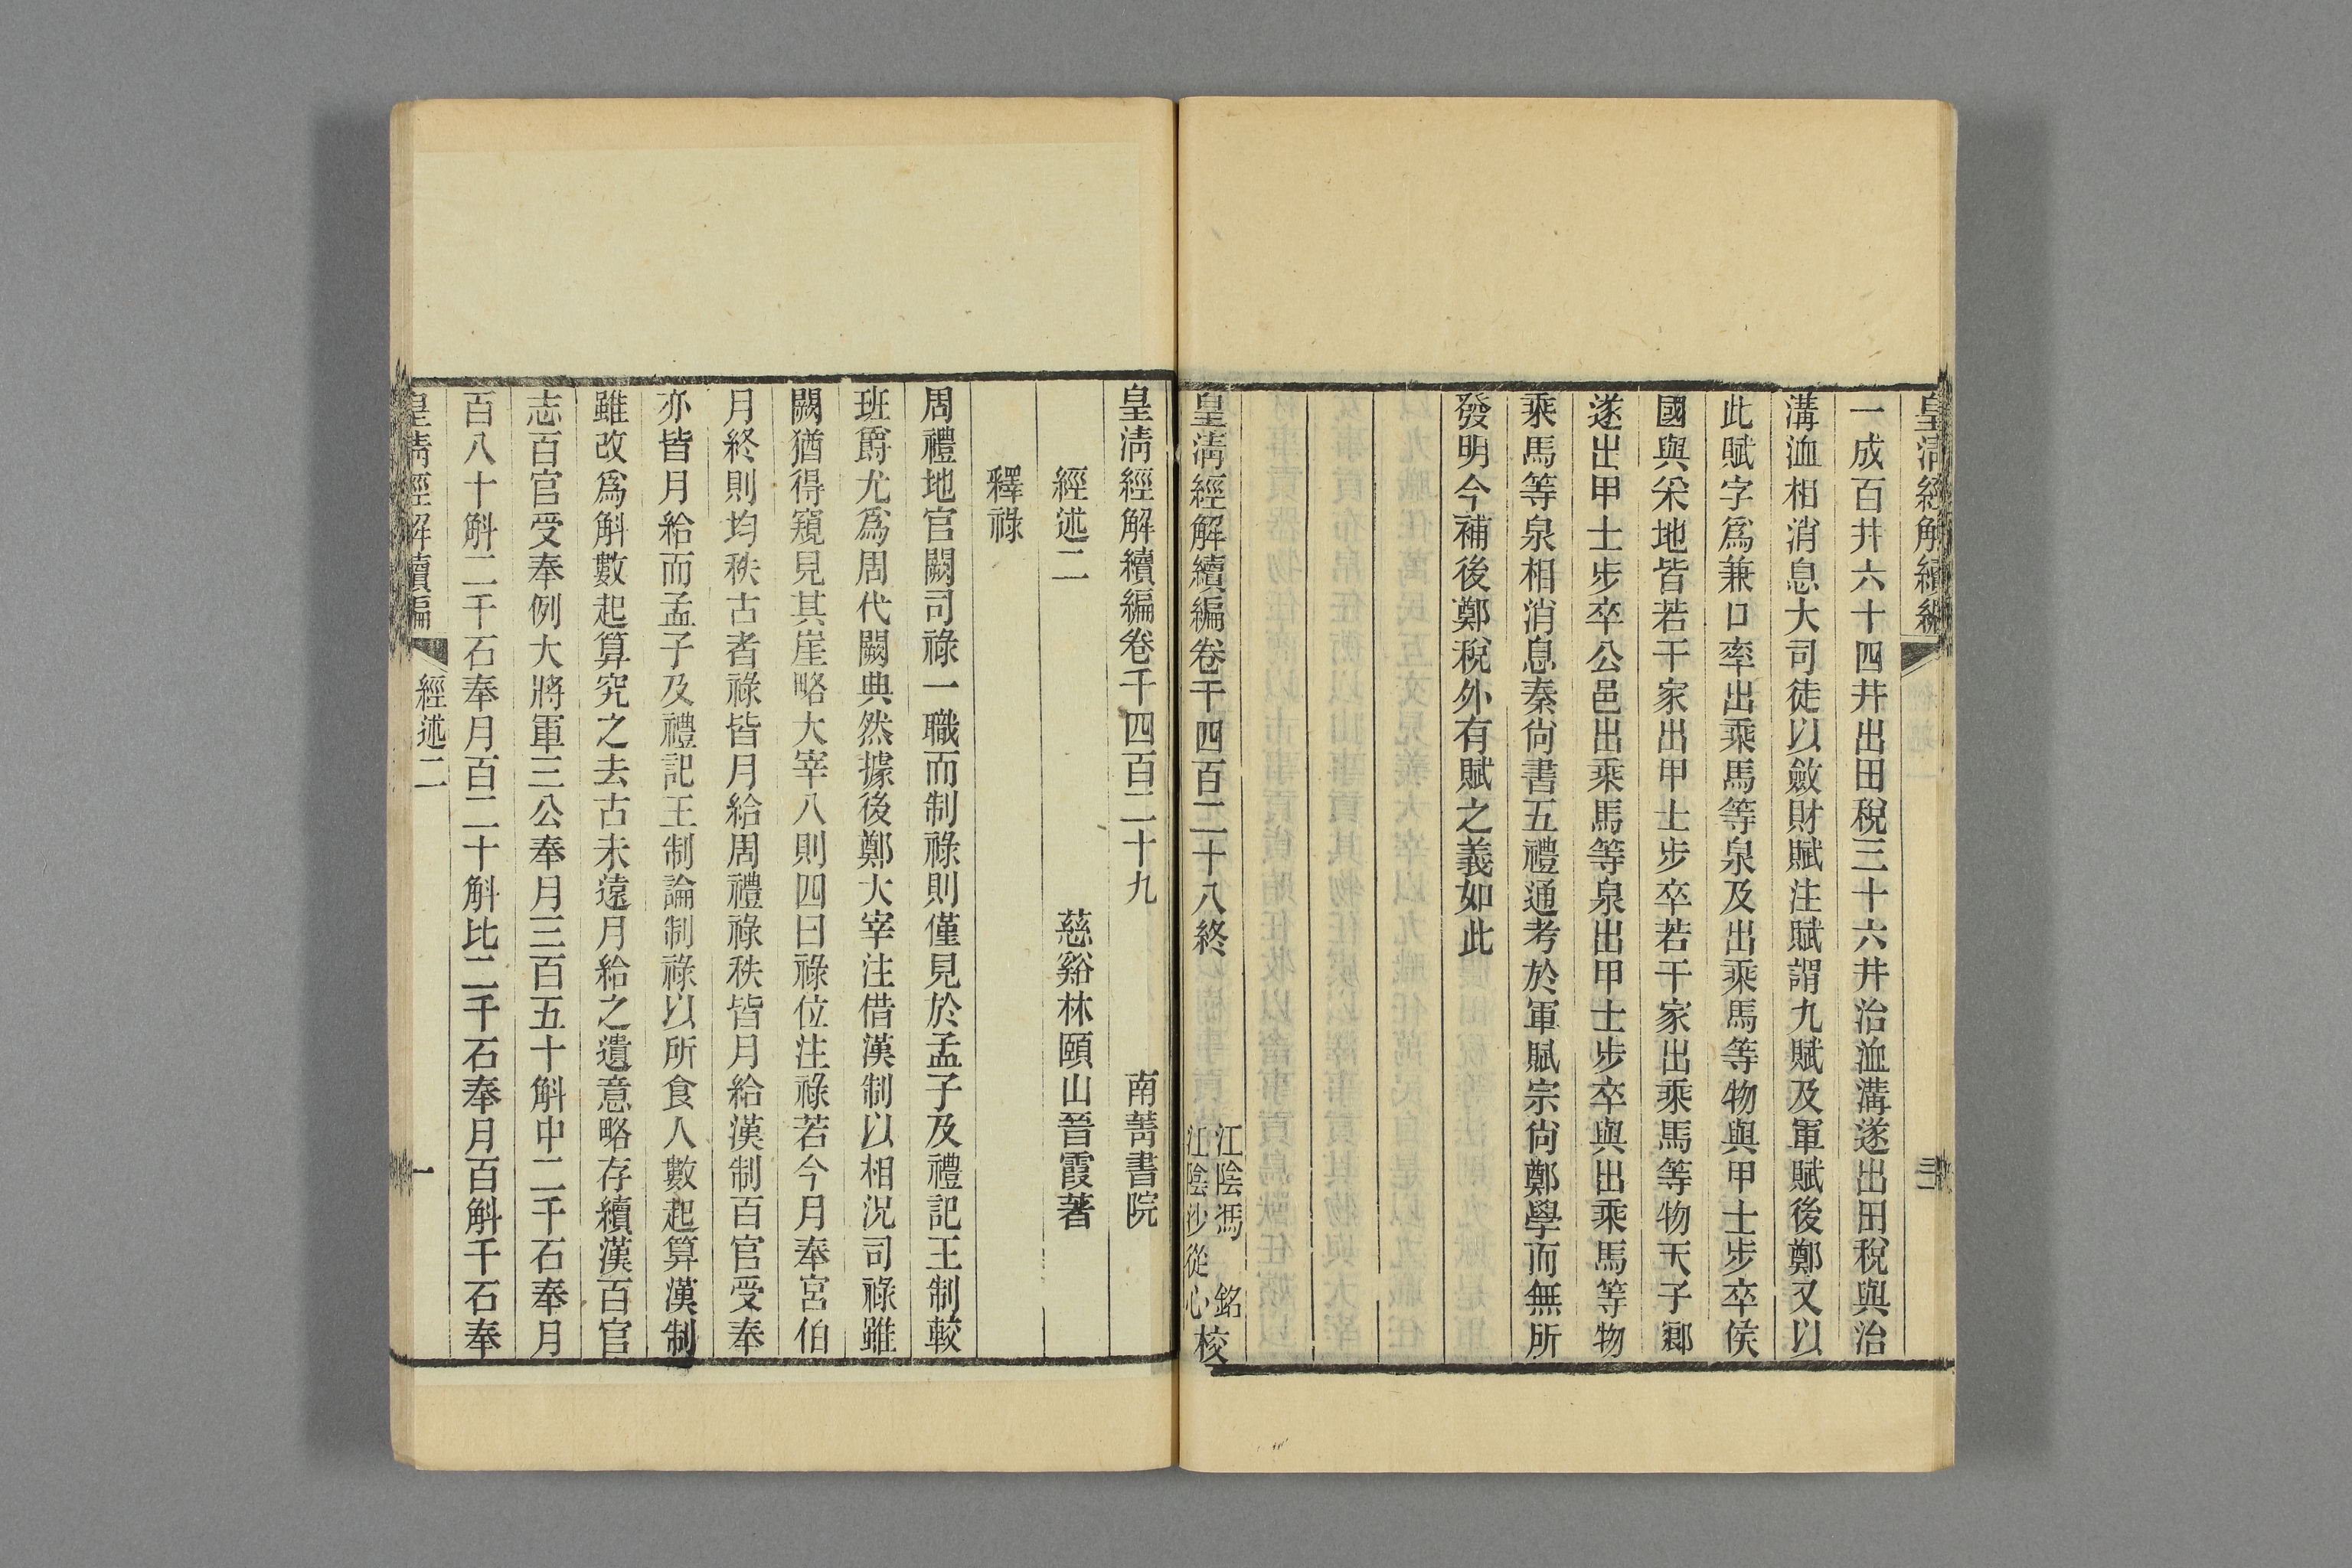 皇清經解續編
一成百井六十四井出田稅三十六井治洫溝遂出田稅與治
溝洫相消息大司徒以斂財賦注賦謂九賦及軍賦後鄭又以
此賦字爲兼口率出乘馬等泉及出乘馬等物與甲士步卒侯
國與釆地皆若干家出甲士步卒若干家出乘馬等物天子鄉
遂出甲士步卒公邑出乘馬等泉出甲士步卒與出乘馬等物
乘馬等泉相消息秦尙書五禮通考於軍賦宗尙鄭學而無所
發明今補後鄭稅外有賦之義如此
皇清經解續編卷千四百二十八終
江陰馮銘
江陰沙從心
校
皇清經解續編卷千四百二十九
南菁書院
經述二
慈谿林頤山晉霞著
釋祿
周禮地官闕司祿一職而制祿則僅見於孟子及禮記王制較
班爵尤爲周代闕典然據後鄭大宰注借漢制以相況司祿雖
闕猶得窺見其崖略大宰八則四曰祿位注祿若今月奉宮伯
月終則均秩古者祿皆月給周禮祿秩皆月給漢制百官受奉
亦皆月給而孟子及禮記王制論制祿以所食人數起算漢制
雖改爲斛數起算究之去古未遠月給之遺意略存續漢百官
志百官受奉例大將軍三公奉月三百五十斛中二千石奉月
百八十斛二千石奉月百二十斛比二千石奉月百斛千石奉
皇清經解續編
經述二
一